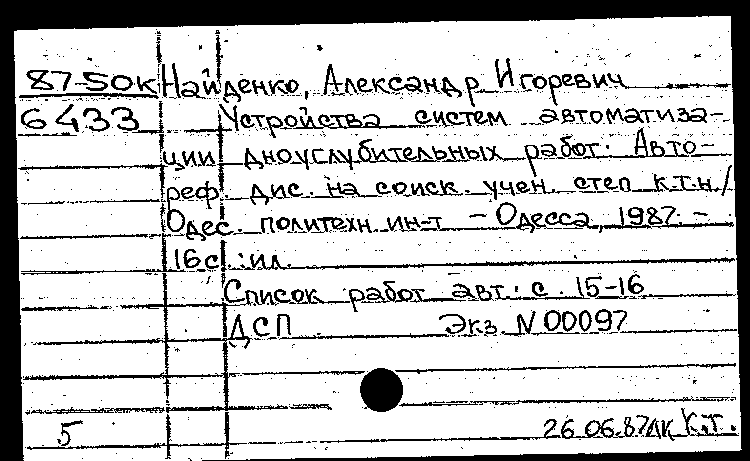 87-50К Найденко, Александр Игоревич
6433 Устройства систем автоматиза-
ции дноуглубительных работ: Авто-
реф. дис. на соиск. учен. степ к.т.н./
Одес. политехн ин-т - Одесса, 1987. -
16с.:ил.
Список работ авт.: с. 15-16
ДСП Экз. N 00097
5 26.06.87 ЛК К.Т.